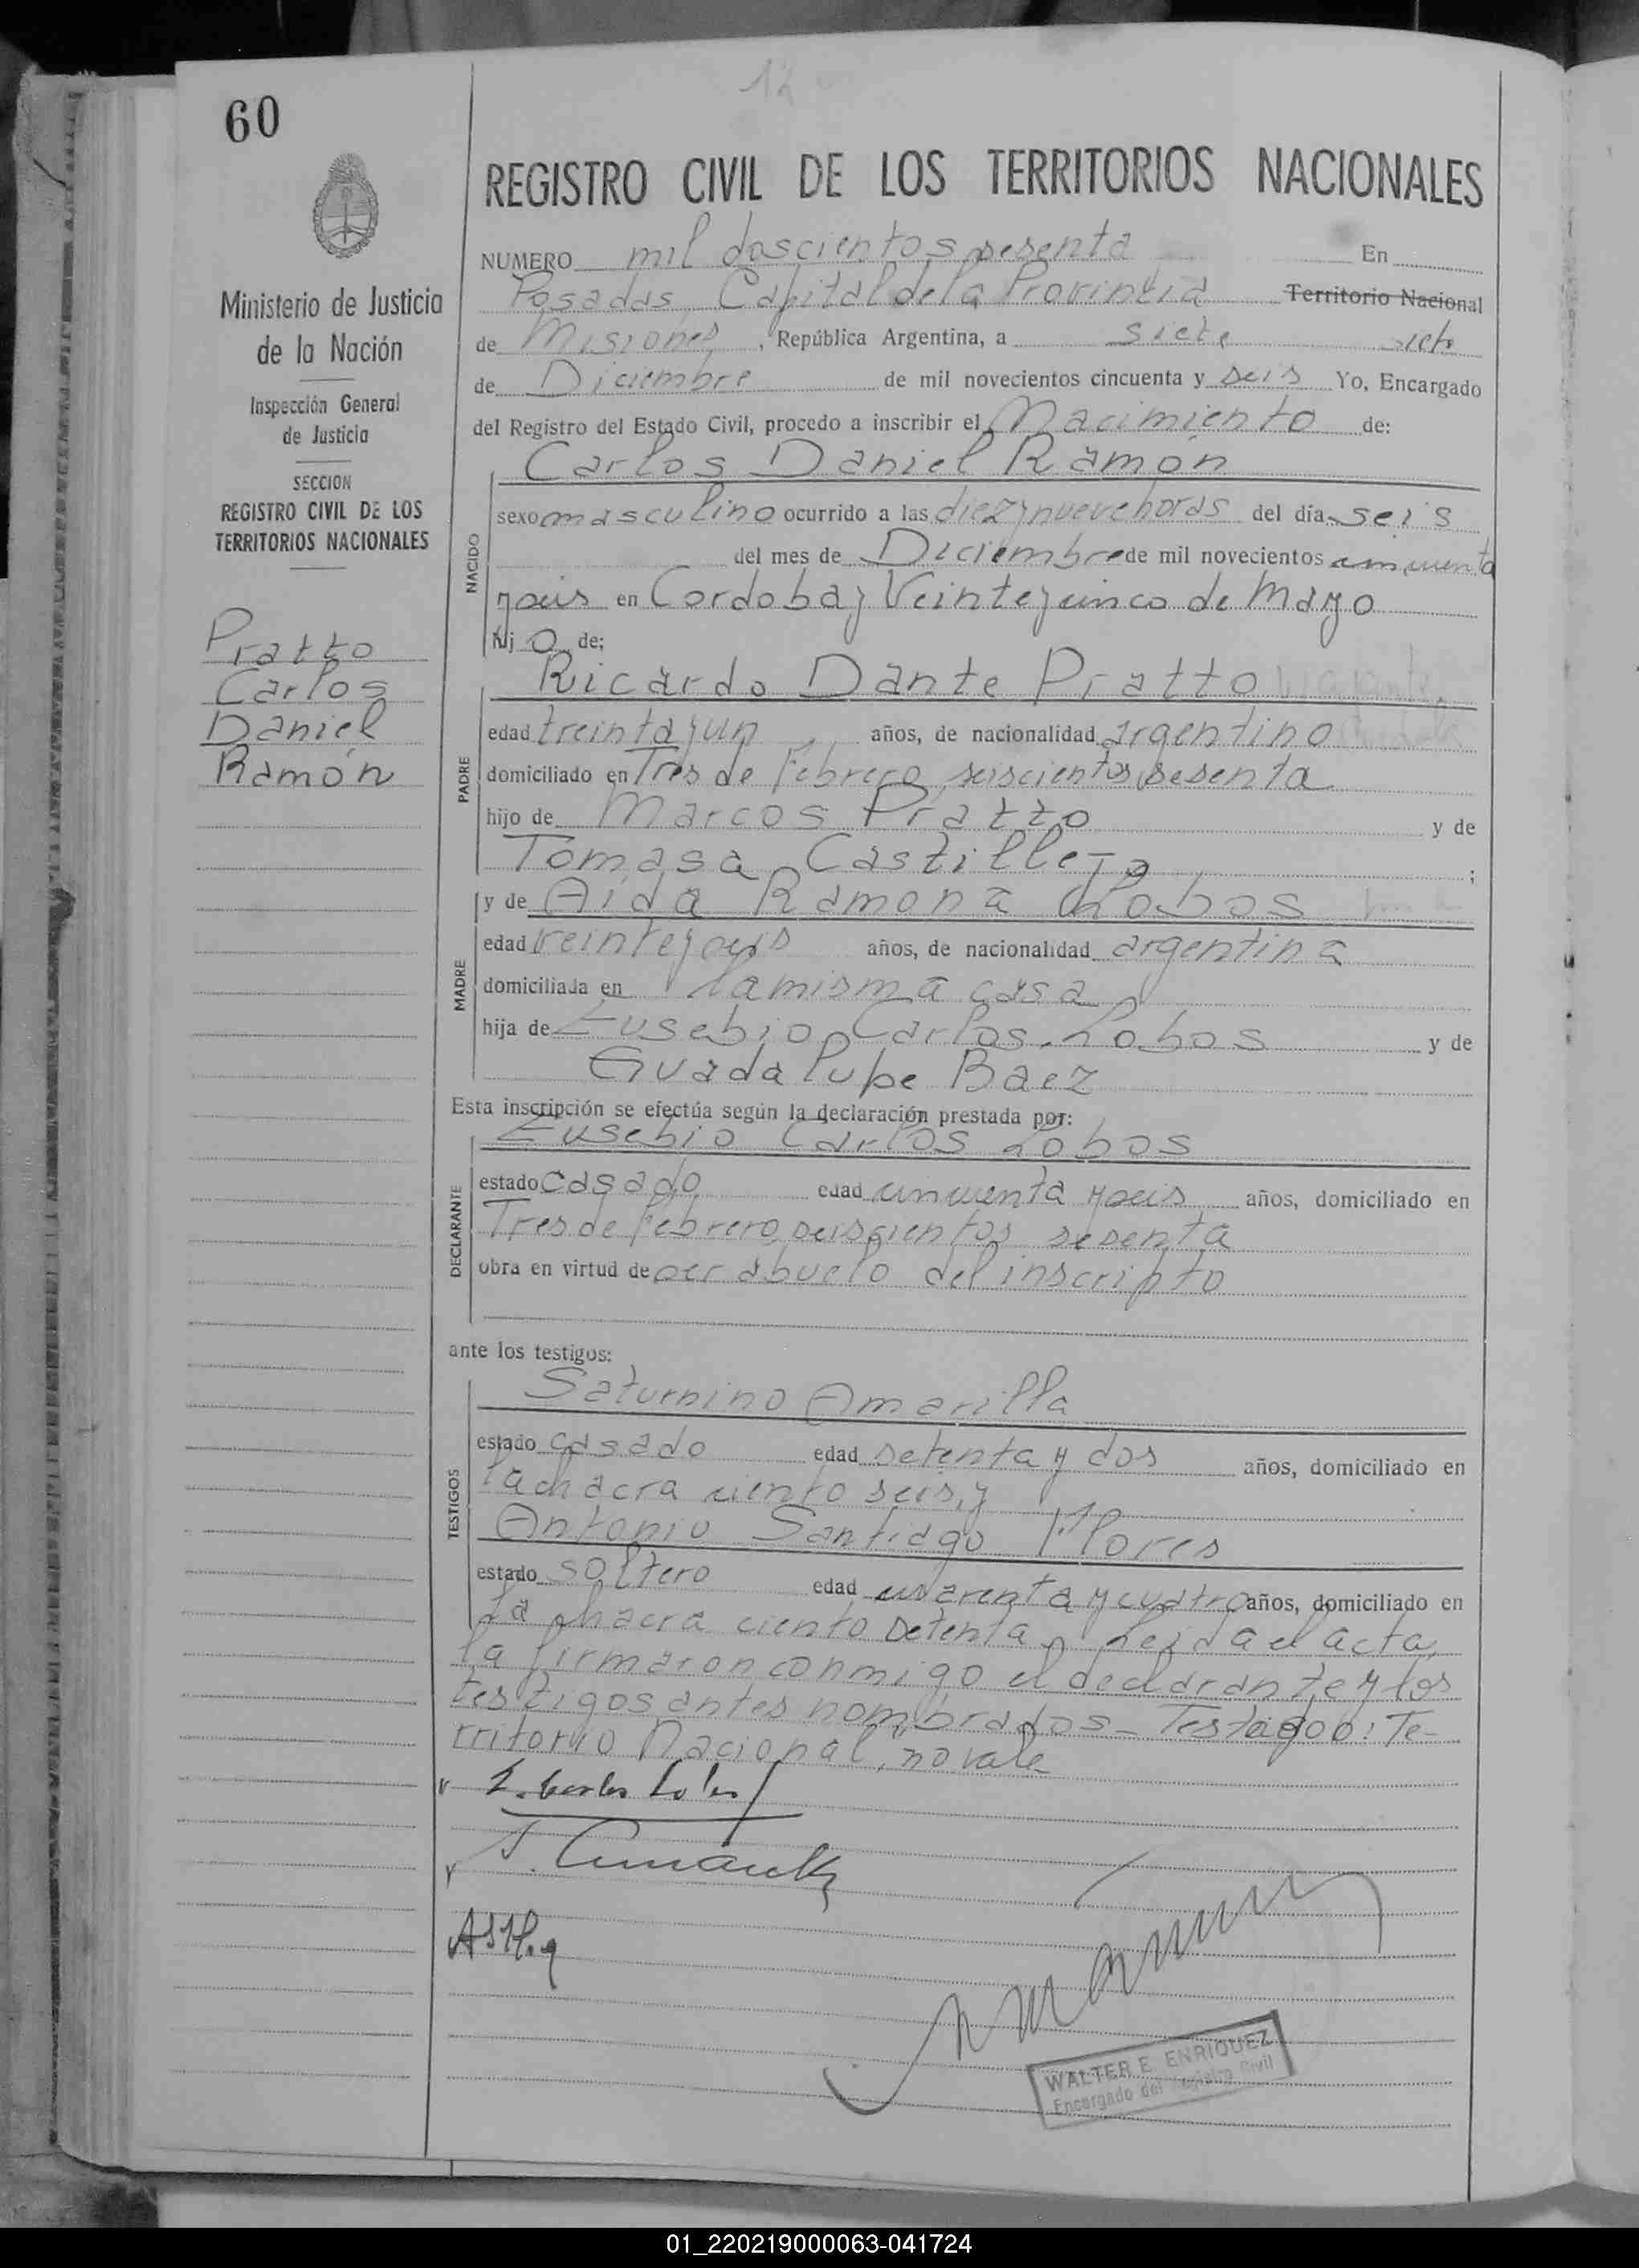 60
REGISTRO CIVIL DE LOS TERRITORIOS NACIONALES
NUMERO mil doscientos sesenta En
Posadas Capital de la Provincia Territorio Nacional
de Misiones, República Argentina, a siete
de Diciembre de mil novecientos cincuenta y seis Yo, Encargado
del Registro del Estado Civil, procedo a inscribir el Nacimiento de:
Carlos Daniel Ramón
sexo masculino ocurrido a las diez y nueve horas del día seis
del mes de Diciembre de mil novecientos cincuenta
y seis en Cordoba y Veinte y cinco de Mayo
hij o de:
NACIDO
Ricardo Dante Pratto
edad treinta y un años, de nacionalidad argentino
domiciliado en Tres de Febrero seiscientos sesenta
hijo de Marcos Pratto y de
Tomasa Castillejo ;
PADRE
y de Aida Ramona Lobos
edad veinte y seis años, de nacionalidad argentina
domiciliada en la misma casa
hija de Eusebio Carlos Lobos y de
Guadalupe Baez
MADRE
Esta inscripción se efectúa según la declaración prestada por:
Eusebio Carlos Lobos
estado casado edad cincuenta y seis años, domiciliado en
Tres de Febrero seiscientos sesenta
obra en virtud de ser abuelo del inscripto
DECLARANTE
ante los testigos:
Saturnino Amarilla
estado casado edad setenta y dos años, domiciliado en
la chacra ciento seis, y
Antonio Santiago Flores
estado soltero edad cuarenta y cuatro años, domiciliado en
la chacra ciento setenta Leida el acta,
la firmaron conmigo el declarante y los
testigos antes nombrados - Testado: Te-
rritorio Nacional, no vale
TESTIGOS
WALTER E. ENRIQUEZ
Encargado del Registro Civil
Ministerio de Justicia
de la Nación
Inspección General
de Justicia
SECCION
REGISTRO CIVIL DE LOS
TERRITORIOS NACIONALES
Pratto
Carlos
Daniel
Ramón
01_220219000063-041724